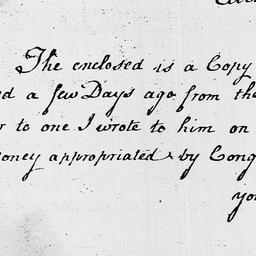 The enclosed is a Copy
d a few Days ago from the
r to one I wrote to him on
oney appropriated by Cong
yo